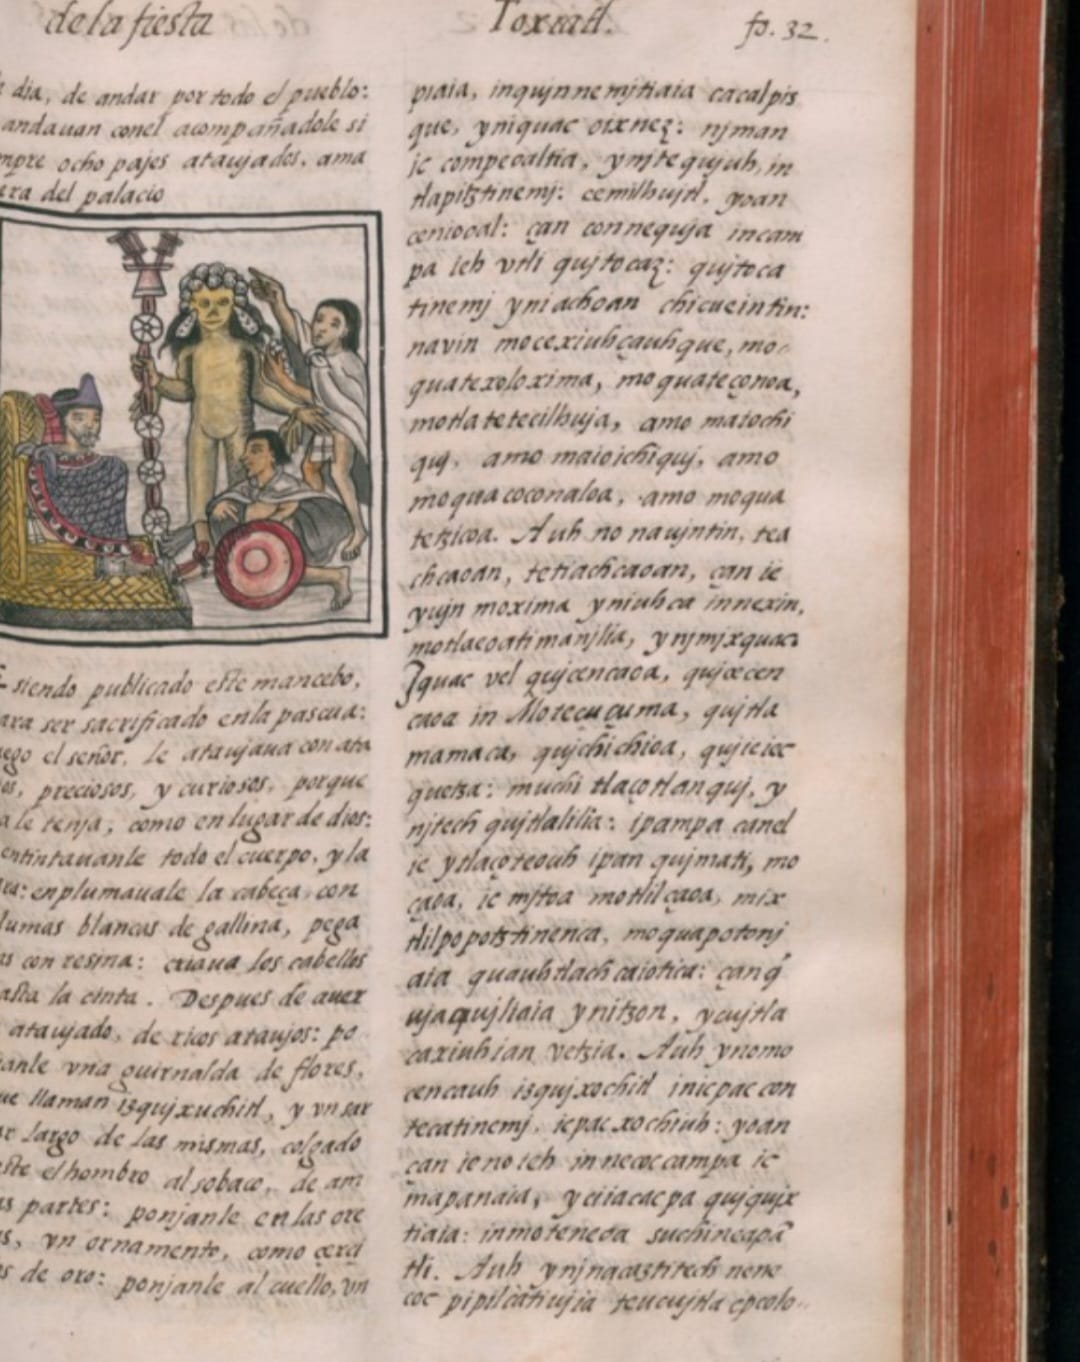 de la fiesta
Toxcatl.
fo. 32.
dia, de andar por todo el pueblo:
andauan conel acompañadole si
mpre ocho pajes ataujados, ama
era del palacio
siendo publicado este mancebo,
ara ser sacrificado enla pascua:
ego el señor, le ataujaua con ata
os, preciosos, y curiosos, porque
a le tenja, como en lugar de dios:
entintauanle todo el cuerpo, y la
ara: enplumauāle la cabeça, con
lumas blancas de gallina, pega
as con resina: criaua los cabellos
asta la cinta. Despues de auer
ataujado, de ricos ataujos: po
ianle vna guirnalda de flores,
ue llaman izqujxuchitl, y vn sar
ar largo de las mismas, colgado
este el hombro al sobaco, de am
as partes: ponjanle en las ore
as, vn ornamento, como çarçi
s de oro: ponjanle al cuello, vn
piaia, inqujnnemjtiaia cacalpix
que, ynjquac oixnez: njman
ic compeoaltia, ynjtequjuh, in
tlapitztinemj: cemilhujtl, yoan
ceniooal: çan connequja incam
pa ieh vtli qujtocaz: qujtoca
tinemj yniachoan chicueintin:
navin mocexiuhçauhque, mo
quatexoloxima, moquateçonoa,
motlatetecilhuja, amo matochi
quj, amo maioichiquj, amo
moquacoconaloa, amo moqua
tetzicoa. Auh no naujntin, tea
chcaoan, tetiachcaoan, çan ie
yujn moxima yniuhca innexin,
motlaeoatimanjlia, ynjmjxquac.
Jquac vel qujcencaoa, qujcecen
caoa in Motecuçuma, qujtla
mamaca, qujchichioa, qujieiec
quetza: muchi tlaçotlanquj, y
njtech qujtlalilia: ipampa canel
ie ytlaçoteouh ipan qujmati, mo
çaoa, ic mjtoa motlilçaoa, mix
tlilpopotztinenca, moquapotonj
aia quauhtlachcaiotica: çan q̄
ujaqujltiaia ynitzon, ycujtla
caxiuhian vetzia. Auh ynomo
cencauh izqujxochitl inicpac con
tecatinemj, icpacxochiuh: yoan
çan ie no ieh innecoccampa ic
mapanaia, yciiacacpa qujqujx
tiaia: inmoteneoa suchineapā
tli. Auh ynjnacaztitech nene
coc pipilcatiujia teucujtla epcolo